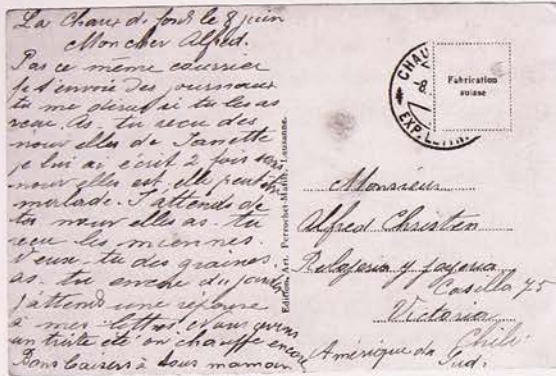 La Chaux de fonds le 8 juin
Mon cher Alfred.
Par ce même courrier
je t'envoie des journaux
tu me diras si tu les as
reçu. As-tu reçu des
nouvelles de Janette
je lui ai écrit 2 fois sans
nouvelles est elle peut être
malade. J'attends de
tes nouvelles as-tu
reçu les miennes.
Veux-tu des graines.
as-tu encore du jardin
j'attend une réponse
à mes lettres. nous avons
un triste été on chauffe encore
Bons baisers à tous maman
Edition Art. Perrochet-Matile, Lausanne.
CHAU
8.
EXP. LETTR.
Fabrication
suisse
Monsieur
Alfred Christen
Relojeria y joyeria
Casilla 75
Victoria
Chili
Amérique du
Sud.